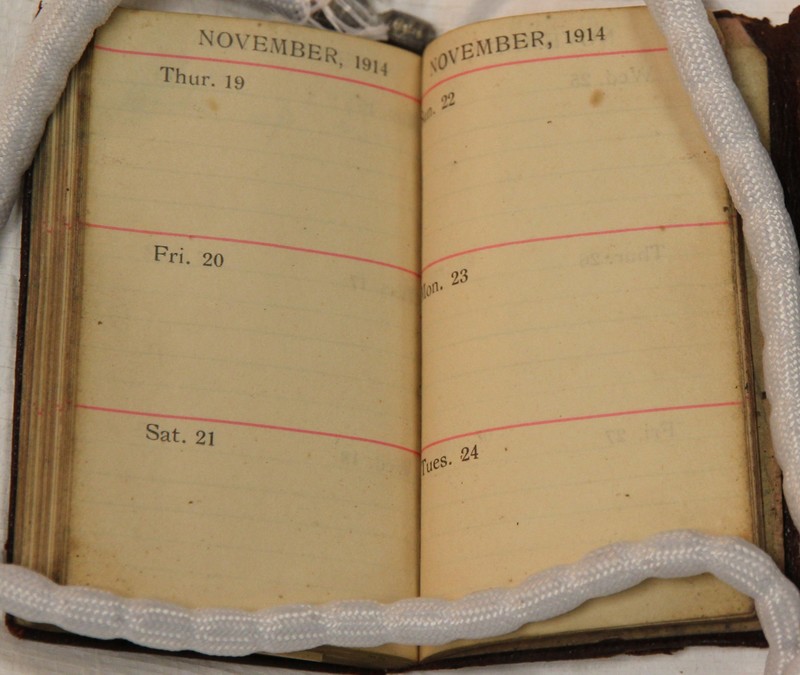 NOVEMBER, 1914
Thur. 19
Fri. 20
Sat. 21
NOVEMBER, 1914
Sun. 22
Mon. 23
Tues. 24